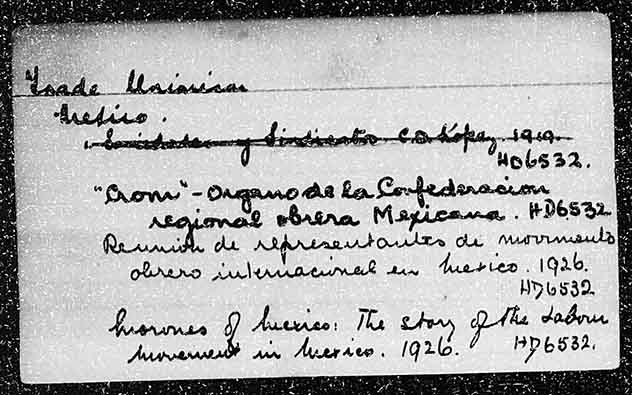 Trade Unionism
Mexico.
Sociedades y Sindicatos C.D. López. 1919.
HD6532.
"Crom" - Organo de La Confederacion
regional obrera Mexicana. HD6532
Reunion de representantes de movimiento
obrero internacional en Mexico. 1926.
HD6532
Morones of Mexico: The story of the Labour
movement in Mexico. 1926. HD6532.